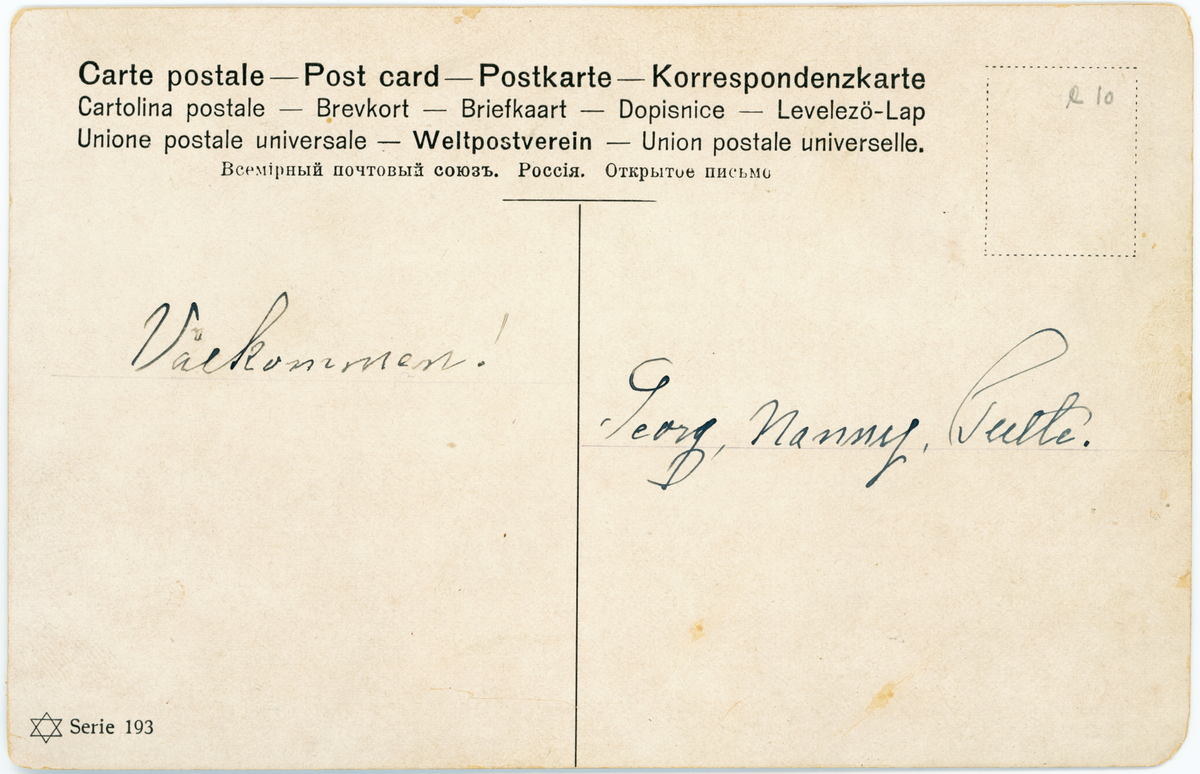 Carte postale — Post card — Postkarte — Korrespondenzkarte
Cartolina postale — Brevkort — Briefkaart — Dopisnice — Levelezö-Lap
Unione postale universale — Weltpostverein — Union postale universelle.
Всемірный почтовый союзъ. Россія. Открытое письмо
R 10
Välkommen!
Georg, Nanny,
Serie 193